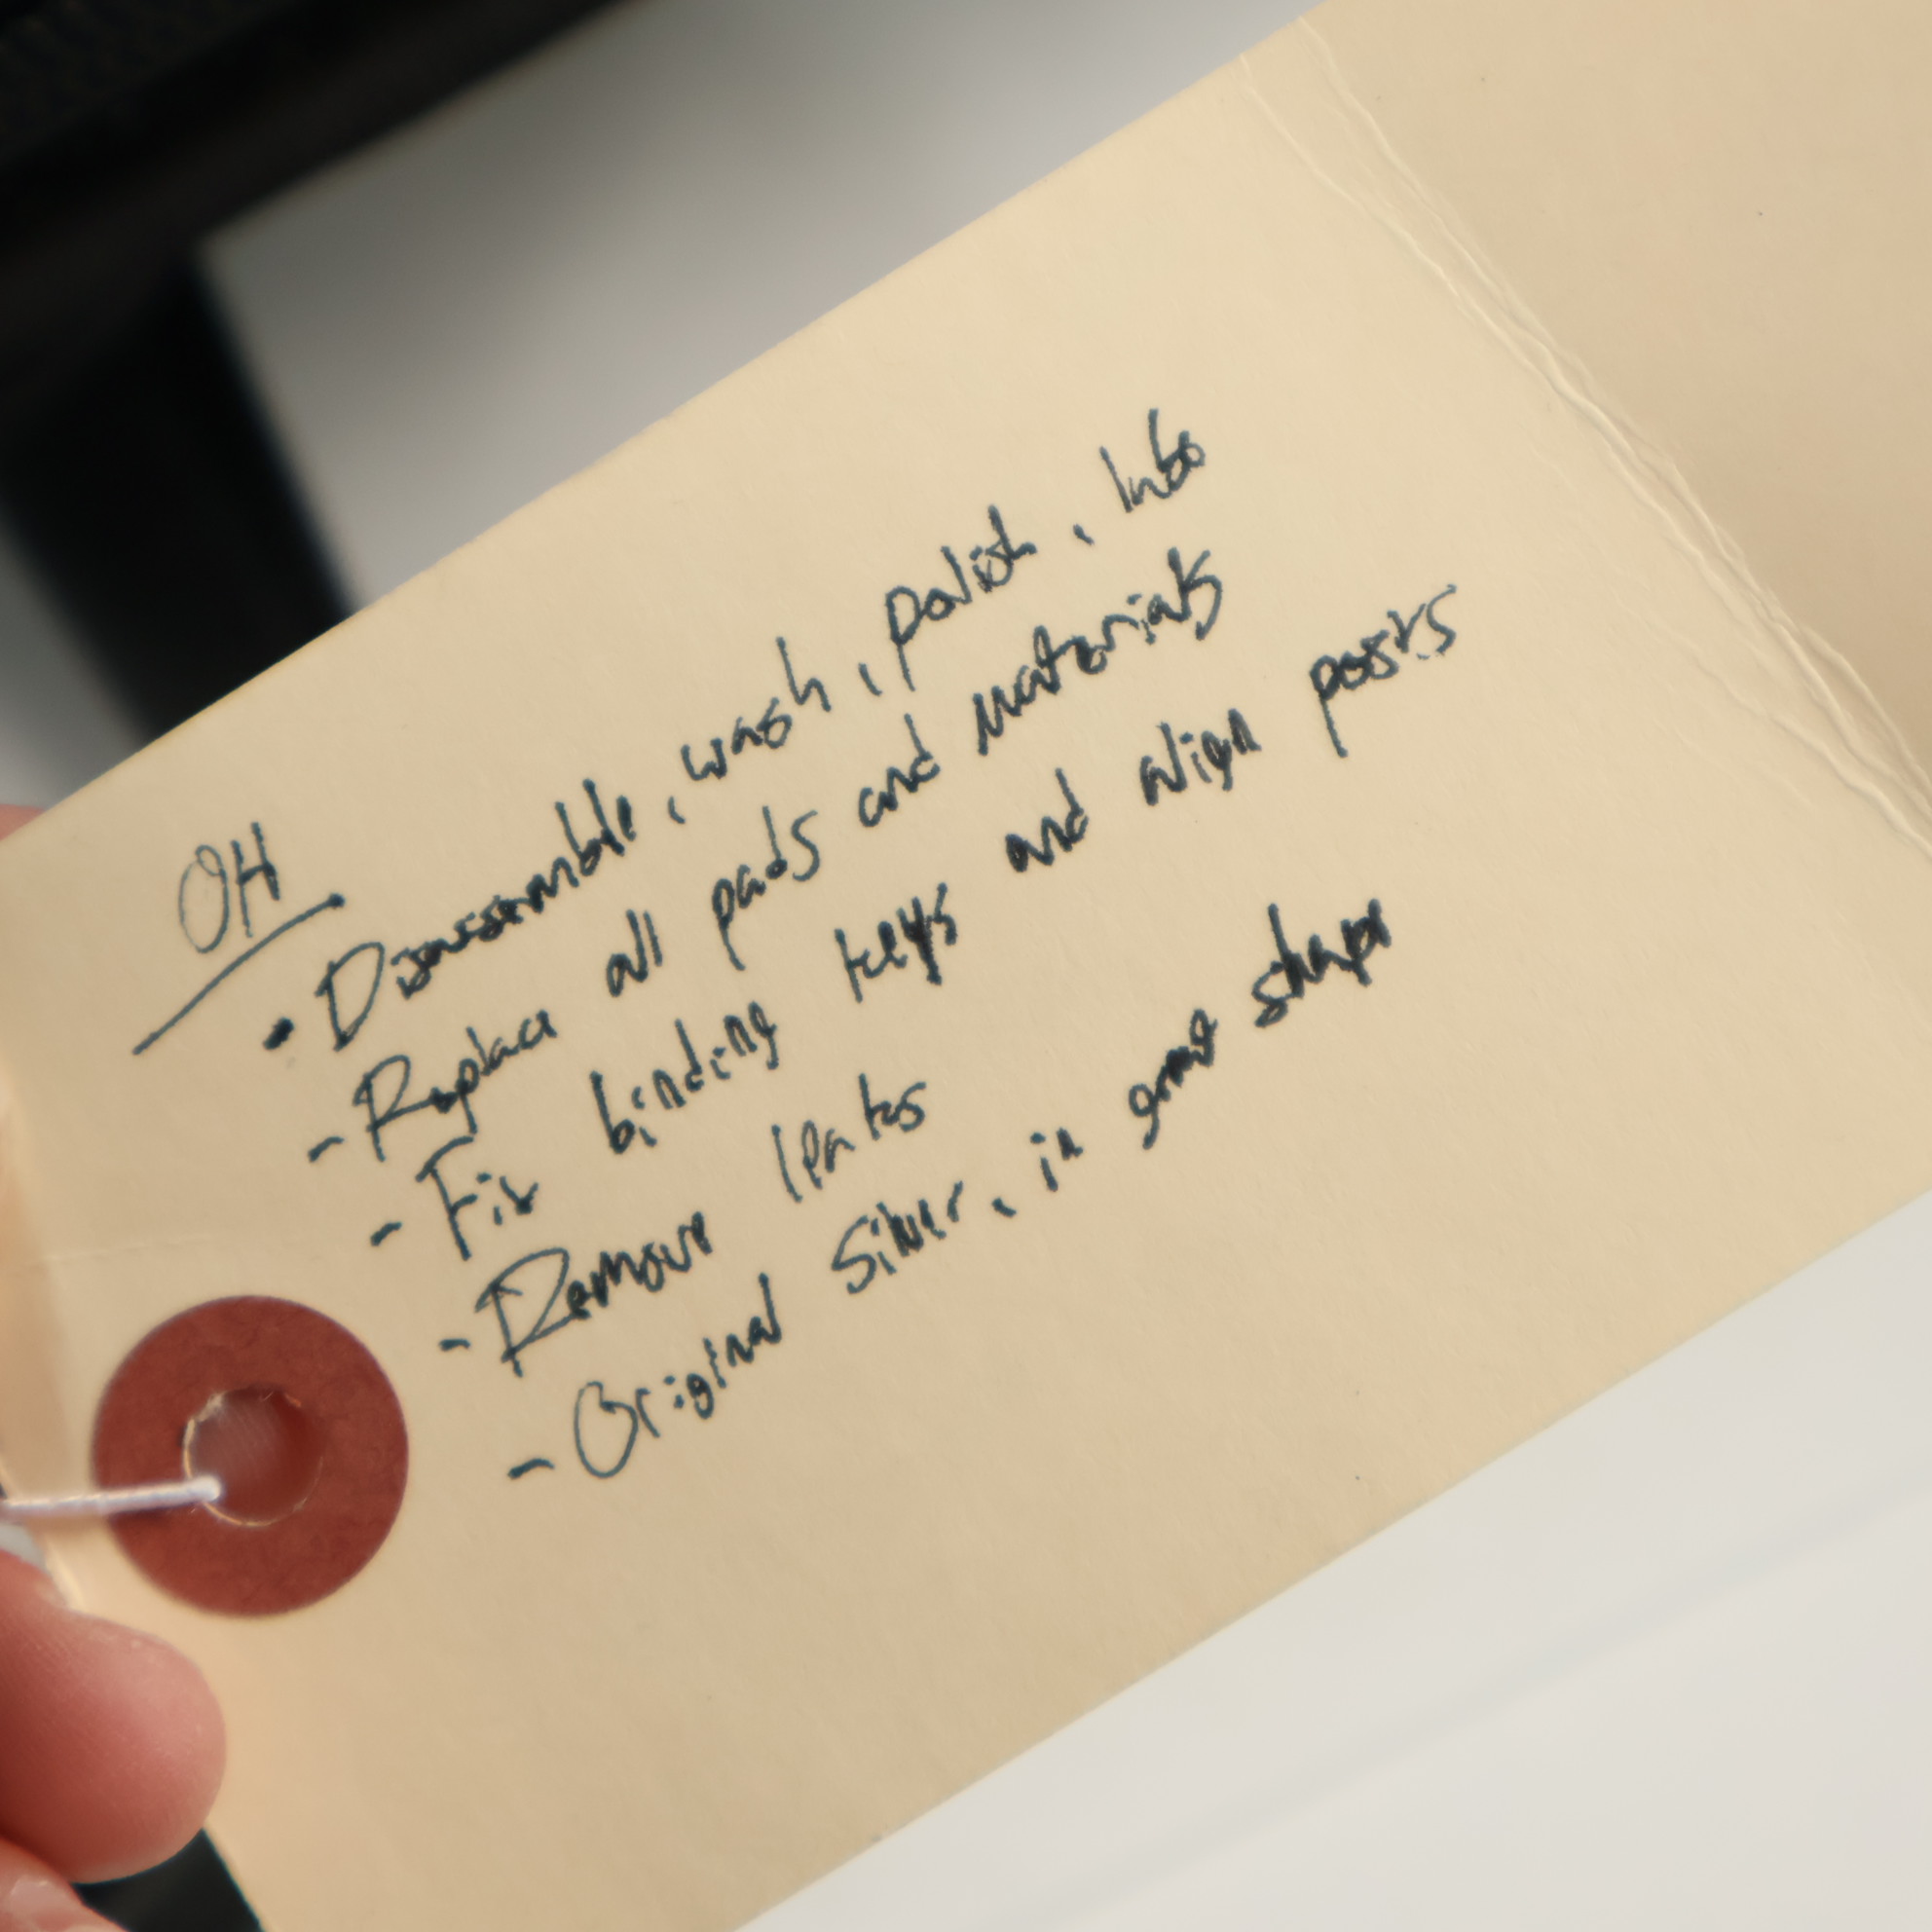 OH
- Disassemble, wash, polish, lube
- Replace all pads and materials
- Fix binding keys and align posts
- Remove leaks
- Original Silver, in great shape